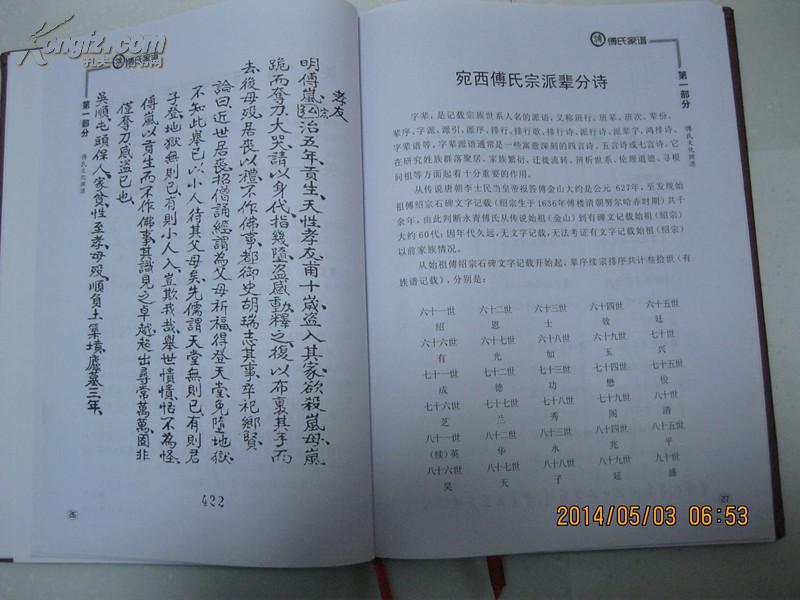 Kongfz.com
孔夫子旧书网
傅氏家谱
第一部分
傅氏文化渊源
孝友
明傅嵐弘治五年貢生天性孝友甫十歲盜入其家欲殺嵐母嵐
跪而奪刀大哭請以身代指幾墮盜感動釋之復以布裹其手而
去後母歿居喪以禮不作佛事都御史胡瑞志其事卒祀鄉賢
論曰近世居喪招僧誦經謂為父母祈福得登天堂免墮地獄
不知此舉已以小人待其父母矣先儒謂天堂無則已有則君
子登地獄無則已有則小人入豈欺我哉舉世憒憒恬不為怪
傅嵐以貢生而不作佛事其識見之卓越超出尋常萬萬固非
僅奪刀感盜已也
吳順屯頭保人家貧性至孝母歿順負土築墳廬墓三年
422
傅氏家谱
第一部分
傅氏文化渊源
宛西傅氏宗派辈分诗
字辈，是记载宗族世系人名的派语，又称班行、班辈、班次、辈份、
辈序、字派、派引、派序、排行、排行歌、排行诗、派行诗、派辈字、鸿排诗、
字辈谱等。字辈派语通常是一些寓意深刻的四言诗、五言诗或七言诗。它
在研究姓族群落聚居、家族繁衍、迁徙流转、辨析世系、伦理道德、寻根
问祖等方面起着十分重要的作用。
从传说唐朝李士民当皇帝报答傅金山大约是公元 627年，至发现始
祖傅绍宗石碑文字记载（绍宗生于1636年傅楼清朝努尔哈赤时期）共千
余年，由此判断永青傅氏从传说始祖（金山）到有碑文记载始祖（绍宗）
大约60代；因年代久远，无文字记载，无法考证有文字记载始祖（绍宗）
以前家族情况。
从始祖傅绍宗石碑文字记载开始起，辈序续宗排序共计叁拾世（有
族谱记载），分别是：
六十一世 六十二世 六十三世 六十四世 六十五世
绍 恩 士 效 廷
六十六世 六十七世 六十八世 六十九世 七十世
有 光 如 玉 兴
七十一世 七十二世 七十三世 七十四世 七十五世
成 德 功 懋 俊
七十六世 七十七世 七十八世 七十九世 八十世
芝 兰 秀 阁 清
八十一世 八十二世 八十三世 八十四世 八十五世
(续)英 华 永 兆 平
八十六世 八十七世 八十八世 八十九世 九十世
昊 天 子 延 盛
27
2014/05/03 06:53